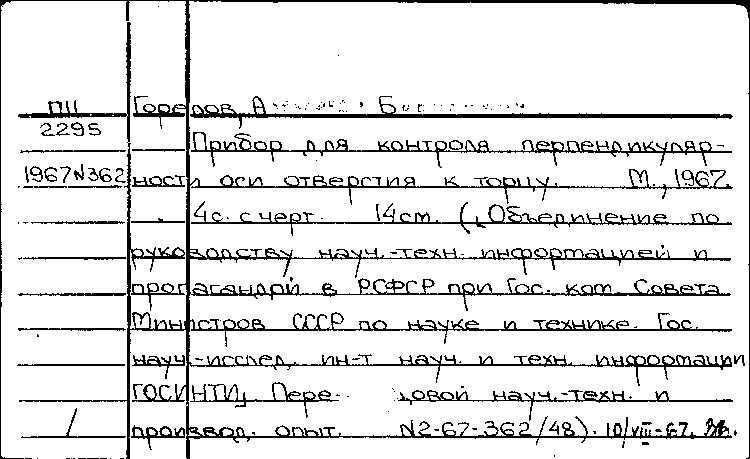 П11 Горелов, А Б
2295
Прибор для контроля перпендикуляр-
1967N362 ности оси отверстия к торцу. М., 1967.
4с. с черт. 14см. (Объединение по
руководству науч.-техн. информацией и
пропагандой в РСФСР при Гос. ком. Совета
Министров СССР по науке и технике. Гос.
науч.-исслед. ин-т науч. и техн. информации
ГОСИНТИ, Пере- довой науч.-техн. и
производ. опыт. N2-67-362/48). 10/VIII-67.